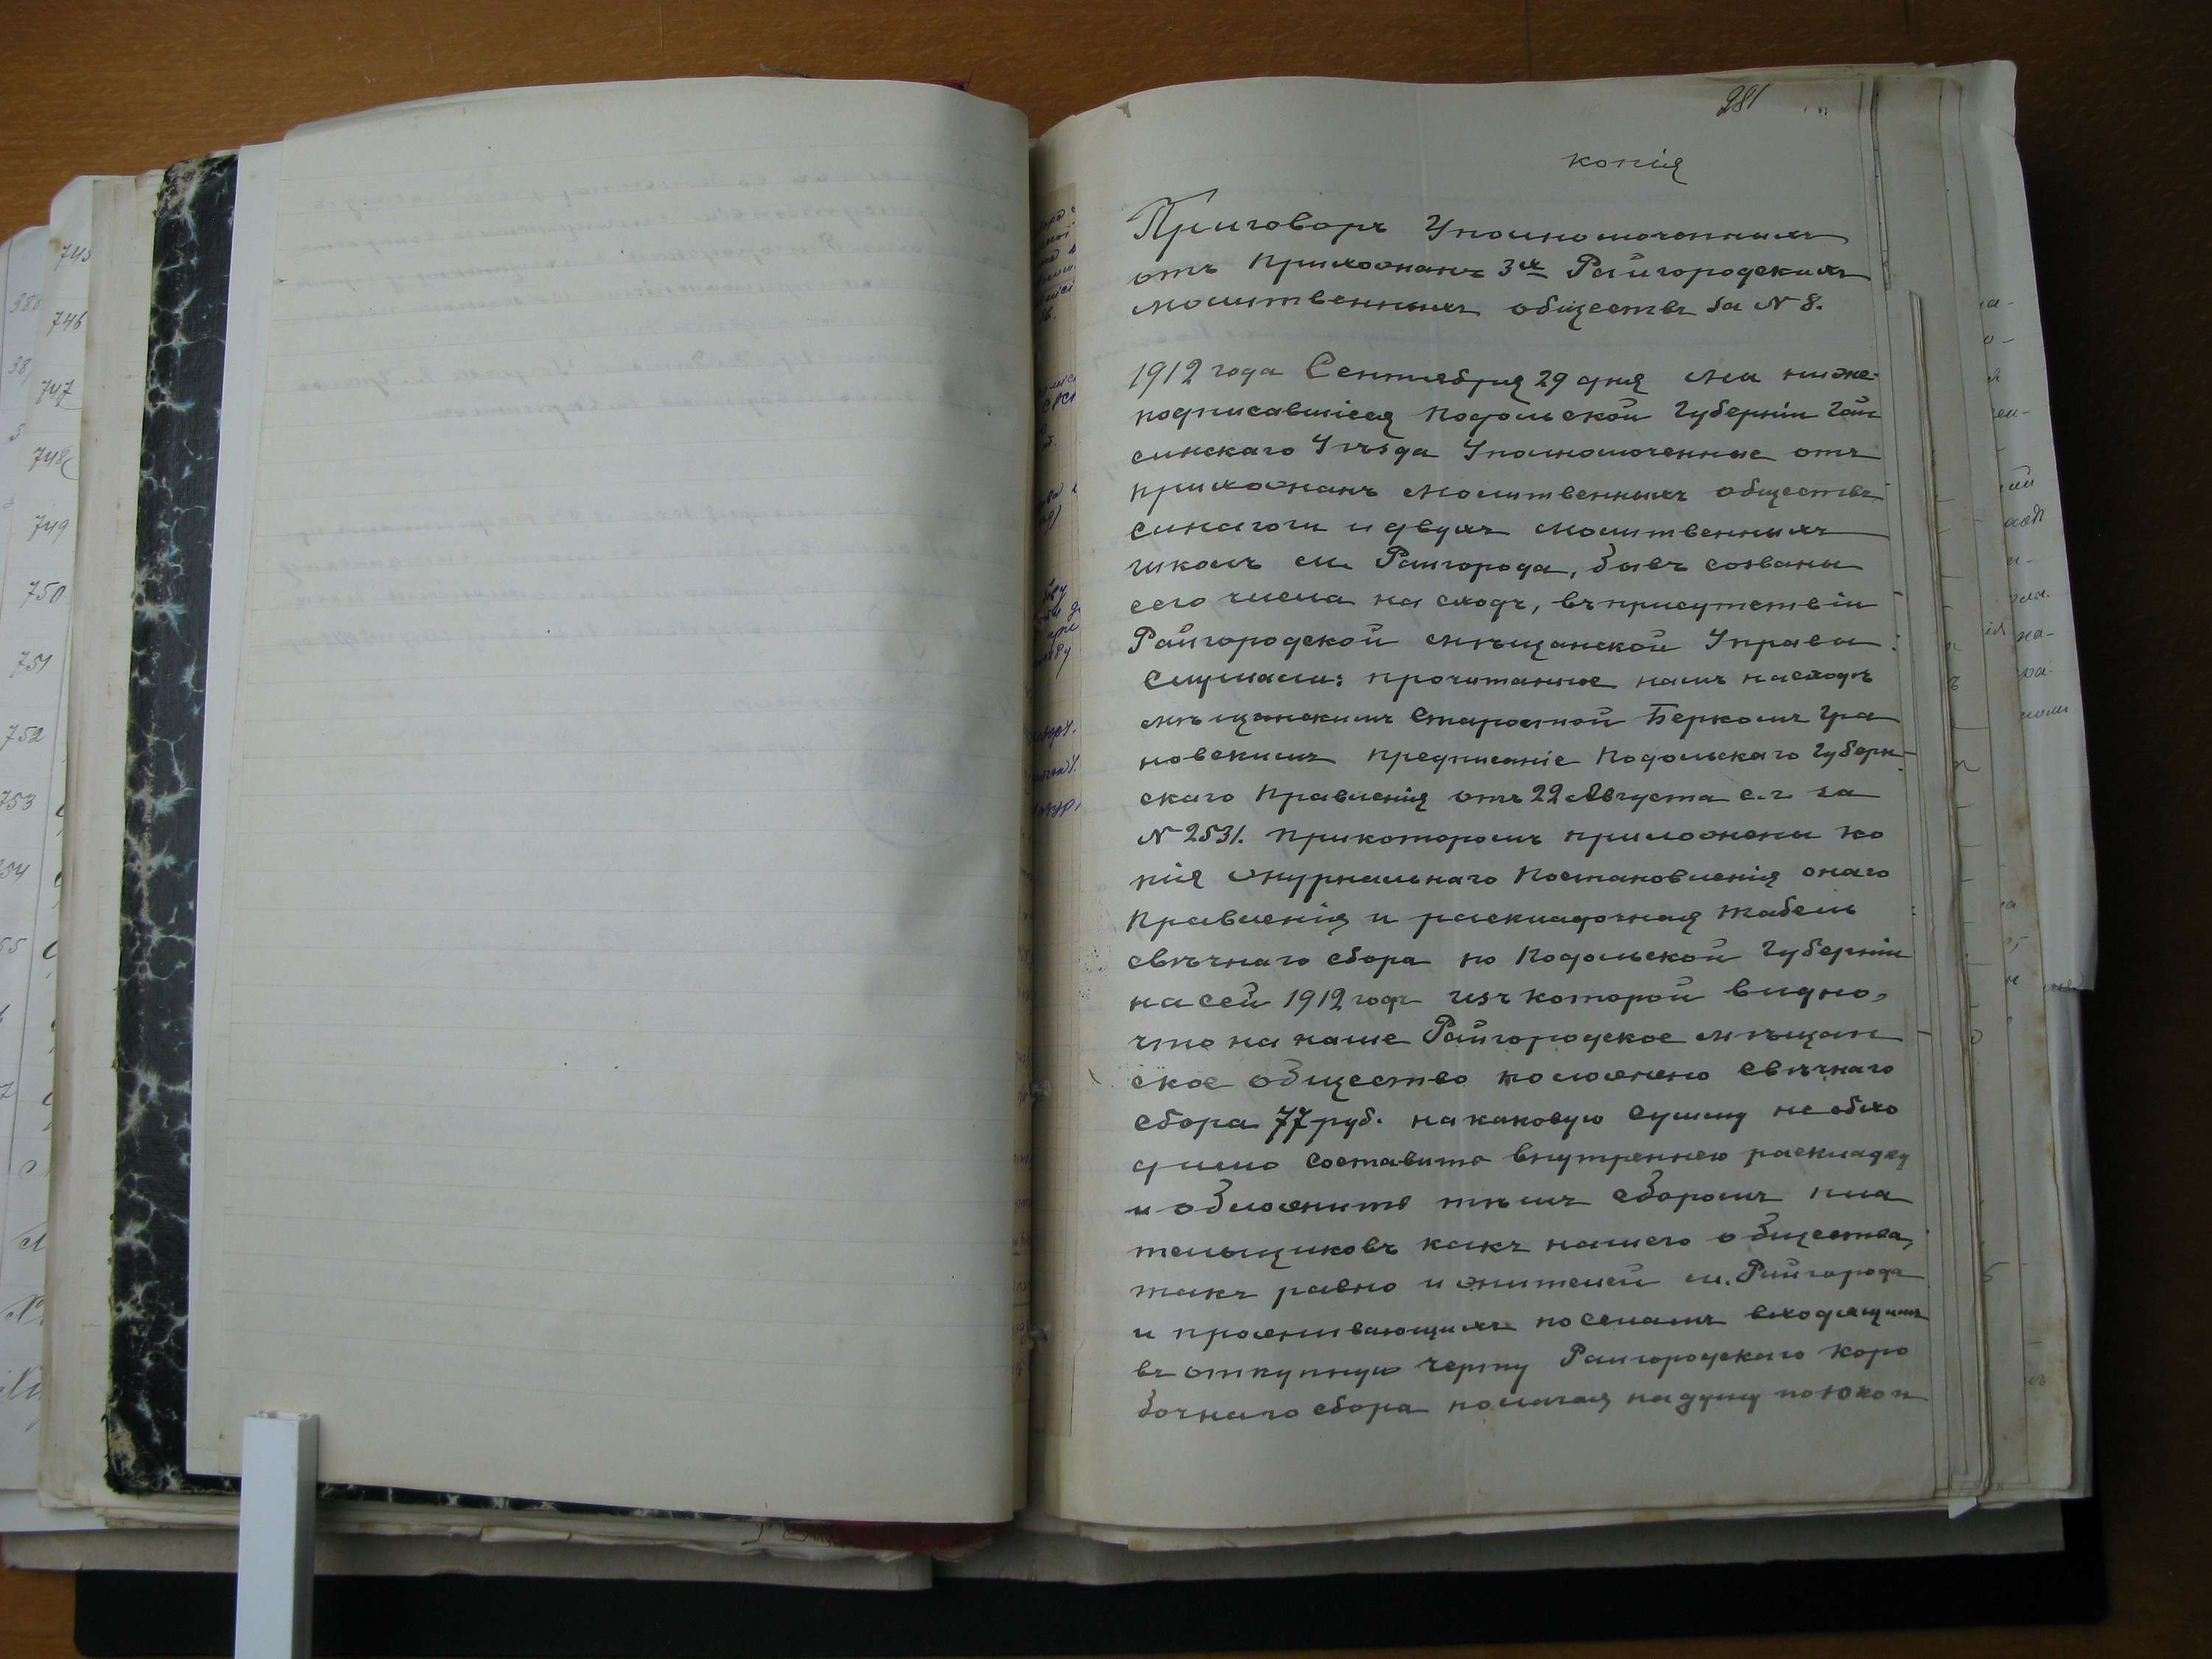 281
копія
Приговоръ Уполномоченныхъ
отъ прихожанъ 3хъ Райгородскихъ
молитвенныхъ обществъ за N 8.
1912 года Сентября 29 дня мы ниже-
подписавшіеся Подольской Губерніи Гай
синскаго Уѣзда Уполномоченные отъ
прихожанъ молитвенныхъ обществъ
синагоги и двухъ молитвенныхъ
школъ м. Райгорода, бывъ созваны
сего числа на сходъ, въ присутствіи
Райгородской мѣщанской Управы
Слушали: прочитанное намъ на сходѣ
мѣщанскимъ Старостой Беркомъ Гра
новскимъ предписаніе Подольскаго Губерн-
скаго Правленія отъ 22 Августа с.г. за
N 2531. при которомъ приложены ко
пія журнальнаго Постановленія онаго
Правленія и раскладочная табель
свѣчнаго сбора по Подольской Губерніи
на сей 1912 годъ изъ которой видно,
что на наше Райгородское мѣщан
ское общество положено свѣчнаго
сбора 77 руб. на каковую сумму необхо
димо составить внутреннею раскладку
и обложить тѣмъ сборомъ пла
тельщиковъ какъ нашего общества,
такъ равно и жителей м. Райгородъ
и проживающихъ по селамъ входящимъ
въ откупную черту Райгородскаго Коро
бочнаго сбора полагая на душу по 10 коп
745
746
747
748
749
750
751
752
753